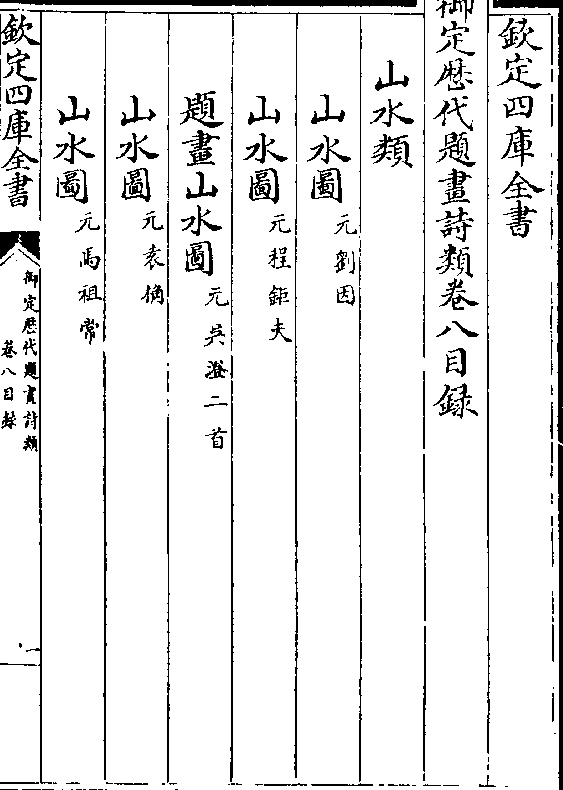 欽定四庫全書
御定歴代題畫詩類卷八目録
山水類
山水圖元劉因
山水圖元程鉅夫
題畫山水圖元吳澄二首
山水圖元袁桷
山水圖元馬祖常
欽定四庫全書
御定歴代題畫詩類
卷八目録
一